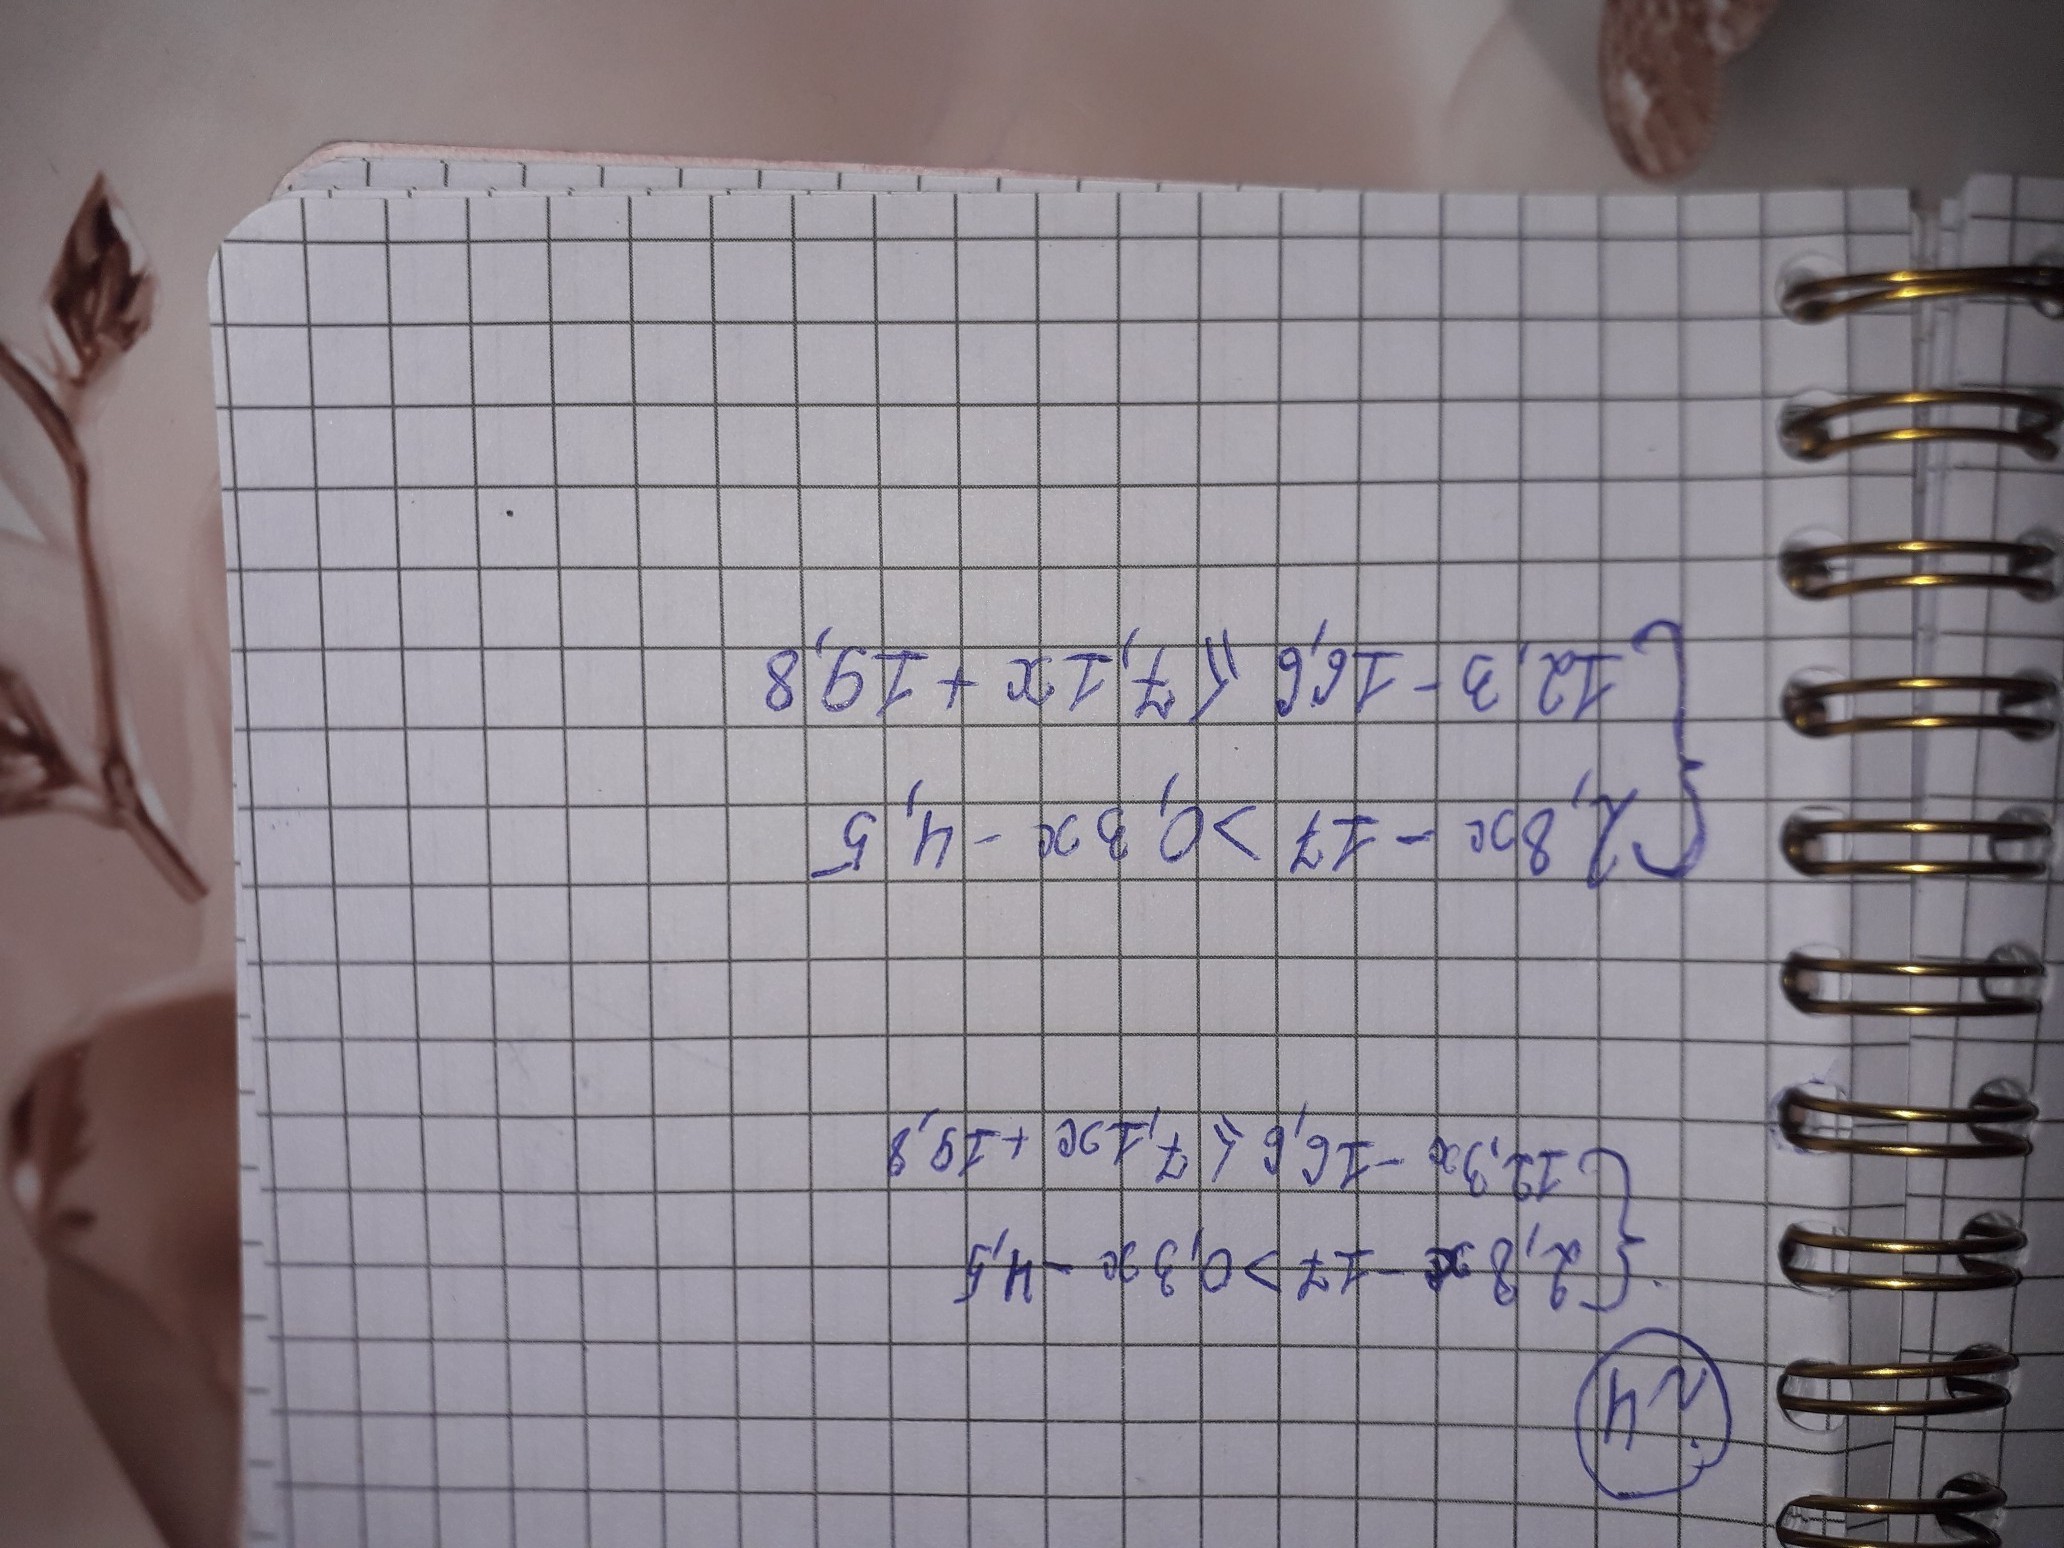 №4
{ 2,8x - 17 > 0,3x - 4,5
12,3x - 16,6 ⩽ 7,1x + 19,8
{ 2,8x - 17 > 0,3x - 4,5
12,3 - 16,6 ⩽ 7,1x + 19,8